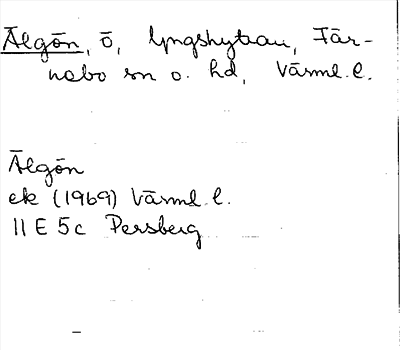 Älgön, ö, Lyngshyttan, Fär-
nebo sn o. hd, Värml. l.
Älgön
ek (1969) Värml. l.
11 E 5c Persberg